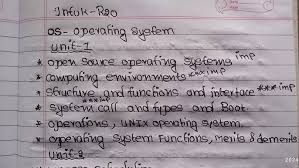 Jntuk-R20
OS- Operating System
Unit-I
* Open Source operating systems imp
* computing environments **imp
* Structure and functions and interface
* System call and types and Boot ***imp
* operations, UNIX operating system.
* operating System Functions, merits & demerits
Unit-2
2024